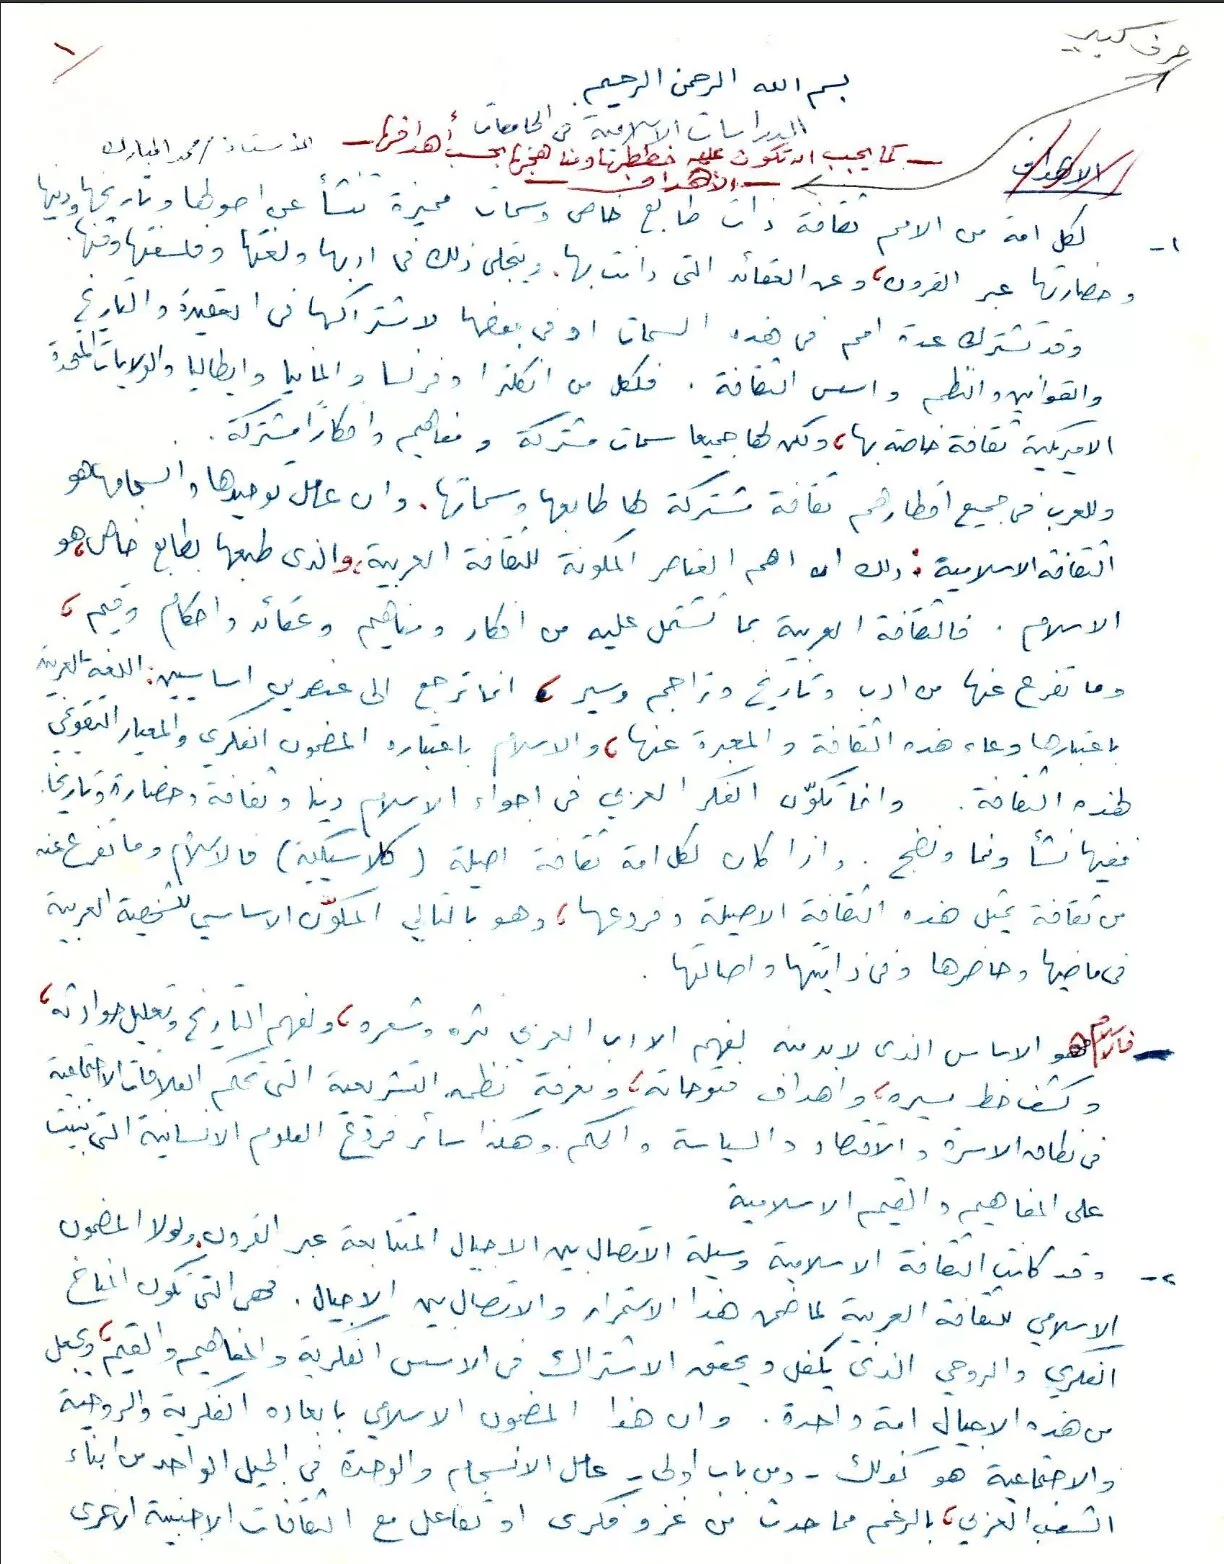 حرف كبير
١
بسم الله الرحمن الرحيم
الدراسات الاسلامية في الجامعات
كما يجب ان تكون عليه خططها ومناهجها بحسب أهدافها
الاستاذ / محمد المبارك
الاهداف
الأهداف
١- لكل امة من الامم ثقافة ذات طابع خاص وسمات مميزة تنشأ عن اصولها وتاريخها ودينها
وحضارتها عبر القرون، وعن العقائد التي دانت بها. ويتجلى ذلك في ادبها ولغتها وفلسفتها وفنها.
وقد تشترك عدة امم في هذه السمات او في بعضها لاشتراكها في العقيدة والتاريخ
والقوانين والنظم واسس الثقافة. فلكل من انكلترا وفرنسا والمانيا وايطاليا والولايات المتحدة
الاميركية ثقافة خاصة بها، ولكن لها جميعا سمات مشتركة ومفاهيم وافكاراً مشتركة.
وللعرب في جميع اقطارهم ثقافة مشتركة لها طابعها وسماتها. وان عامل توحيدها وانسجامها هو
الثقافة الاسلامية: ذلك ان اهم العناصر المكونة للثقافة العربية، والذي طبعها بطابع خاص، هو
الاسلام. فالثقافة العربية بما تشتمل عليه من افكار ومفاهيم وعقائد واحكام وقيم،
وما تفرع عنها من ادب وتاريخ وتراجم وسير، انما ترجع الى عنصرين اساسيين: اللغة العربية
باعتبارها وعاء هذه الثقافة والمعبرة عنها، والاسلام باعتباره المضمون الفكري والمعيار التقويمي
لهذه الثقافة. وانما تكوّن الفكر العربي في اجواء الاسلام دينا وثقافة وحضارة وتاريخا.
ففيها نشأ ونما ونضج. واذا كان لكل امة ثقافة اصيلة (كلاسيكية) فالاسلام وما تفرع عنه
من ثقافة يمثل هذه الثقافة الاصيلة وفروعها، وهو بالتالي المكوّن الاساسي للشخصية العربية
في ماضيها وحاضرها وفي ذاتيتها واصالتها.
فالاسلام هو الاساس الذي لا بد منه لفهم الادب العربي نثره وشعره، ولفهم التاريخ وتعليل حوادثه،
وكشف خط سيره، واهداف فتوحاته، ومعرفة نظمه التشريعية التي تحكم العلاقات الاجتماعية
في نطاق الاسرة والاقتصاد والسياسة والحكم. وهكذا سائر فروع العلوم الانسانية التي بنيت
على المفاهيم والقيم الاسلامية
٢- وقد كانت الثقافة الاسلامية وسيلة الاتصال بين الاجيال المتتابعة عبر القرون. ولولا المضمون
الاسلامي للثقافة العربية لما ضمن هذا الاستمرار والاتصال بين الاجيال. فهي التي تكون المناخ
الفكري والروحي الذي يكفل ويحقق الاشتراك في الاسس الفكرية والمفاهيم والقيم، ويجعل
من هذه الاجيال امة واحدة. وان هذا المضمون الاسلامي بابعاده الفكرية والروحية
والاجتماعية هو كذلك - ومن باب اولى - عامل الانسجام والوحدة في الجيل الواحد من ابناء
الشعب العربي، بالرغم مما حدث من غزو فكري او تفاعل مع الثقافات الاجنبية الاخرى